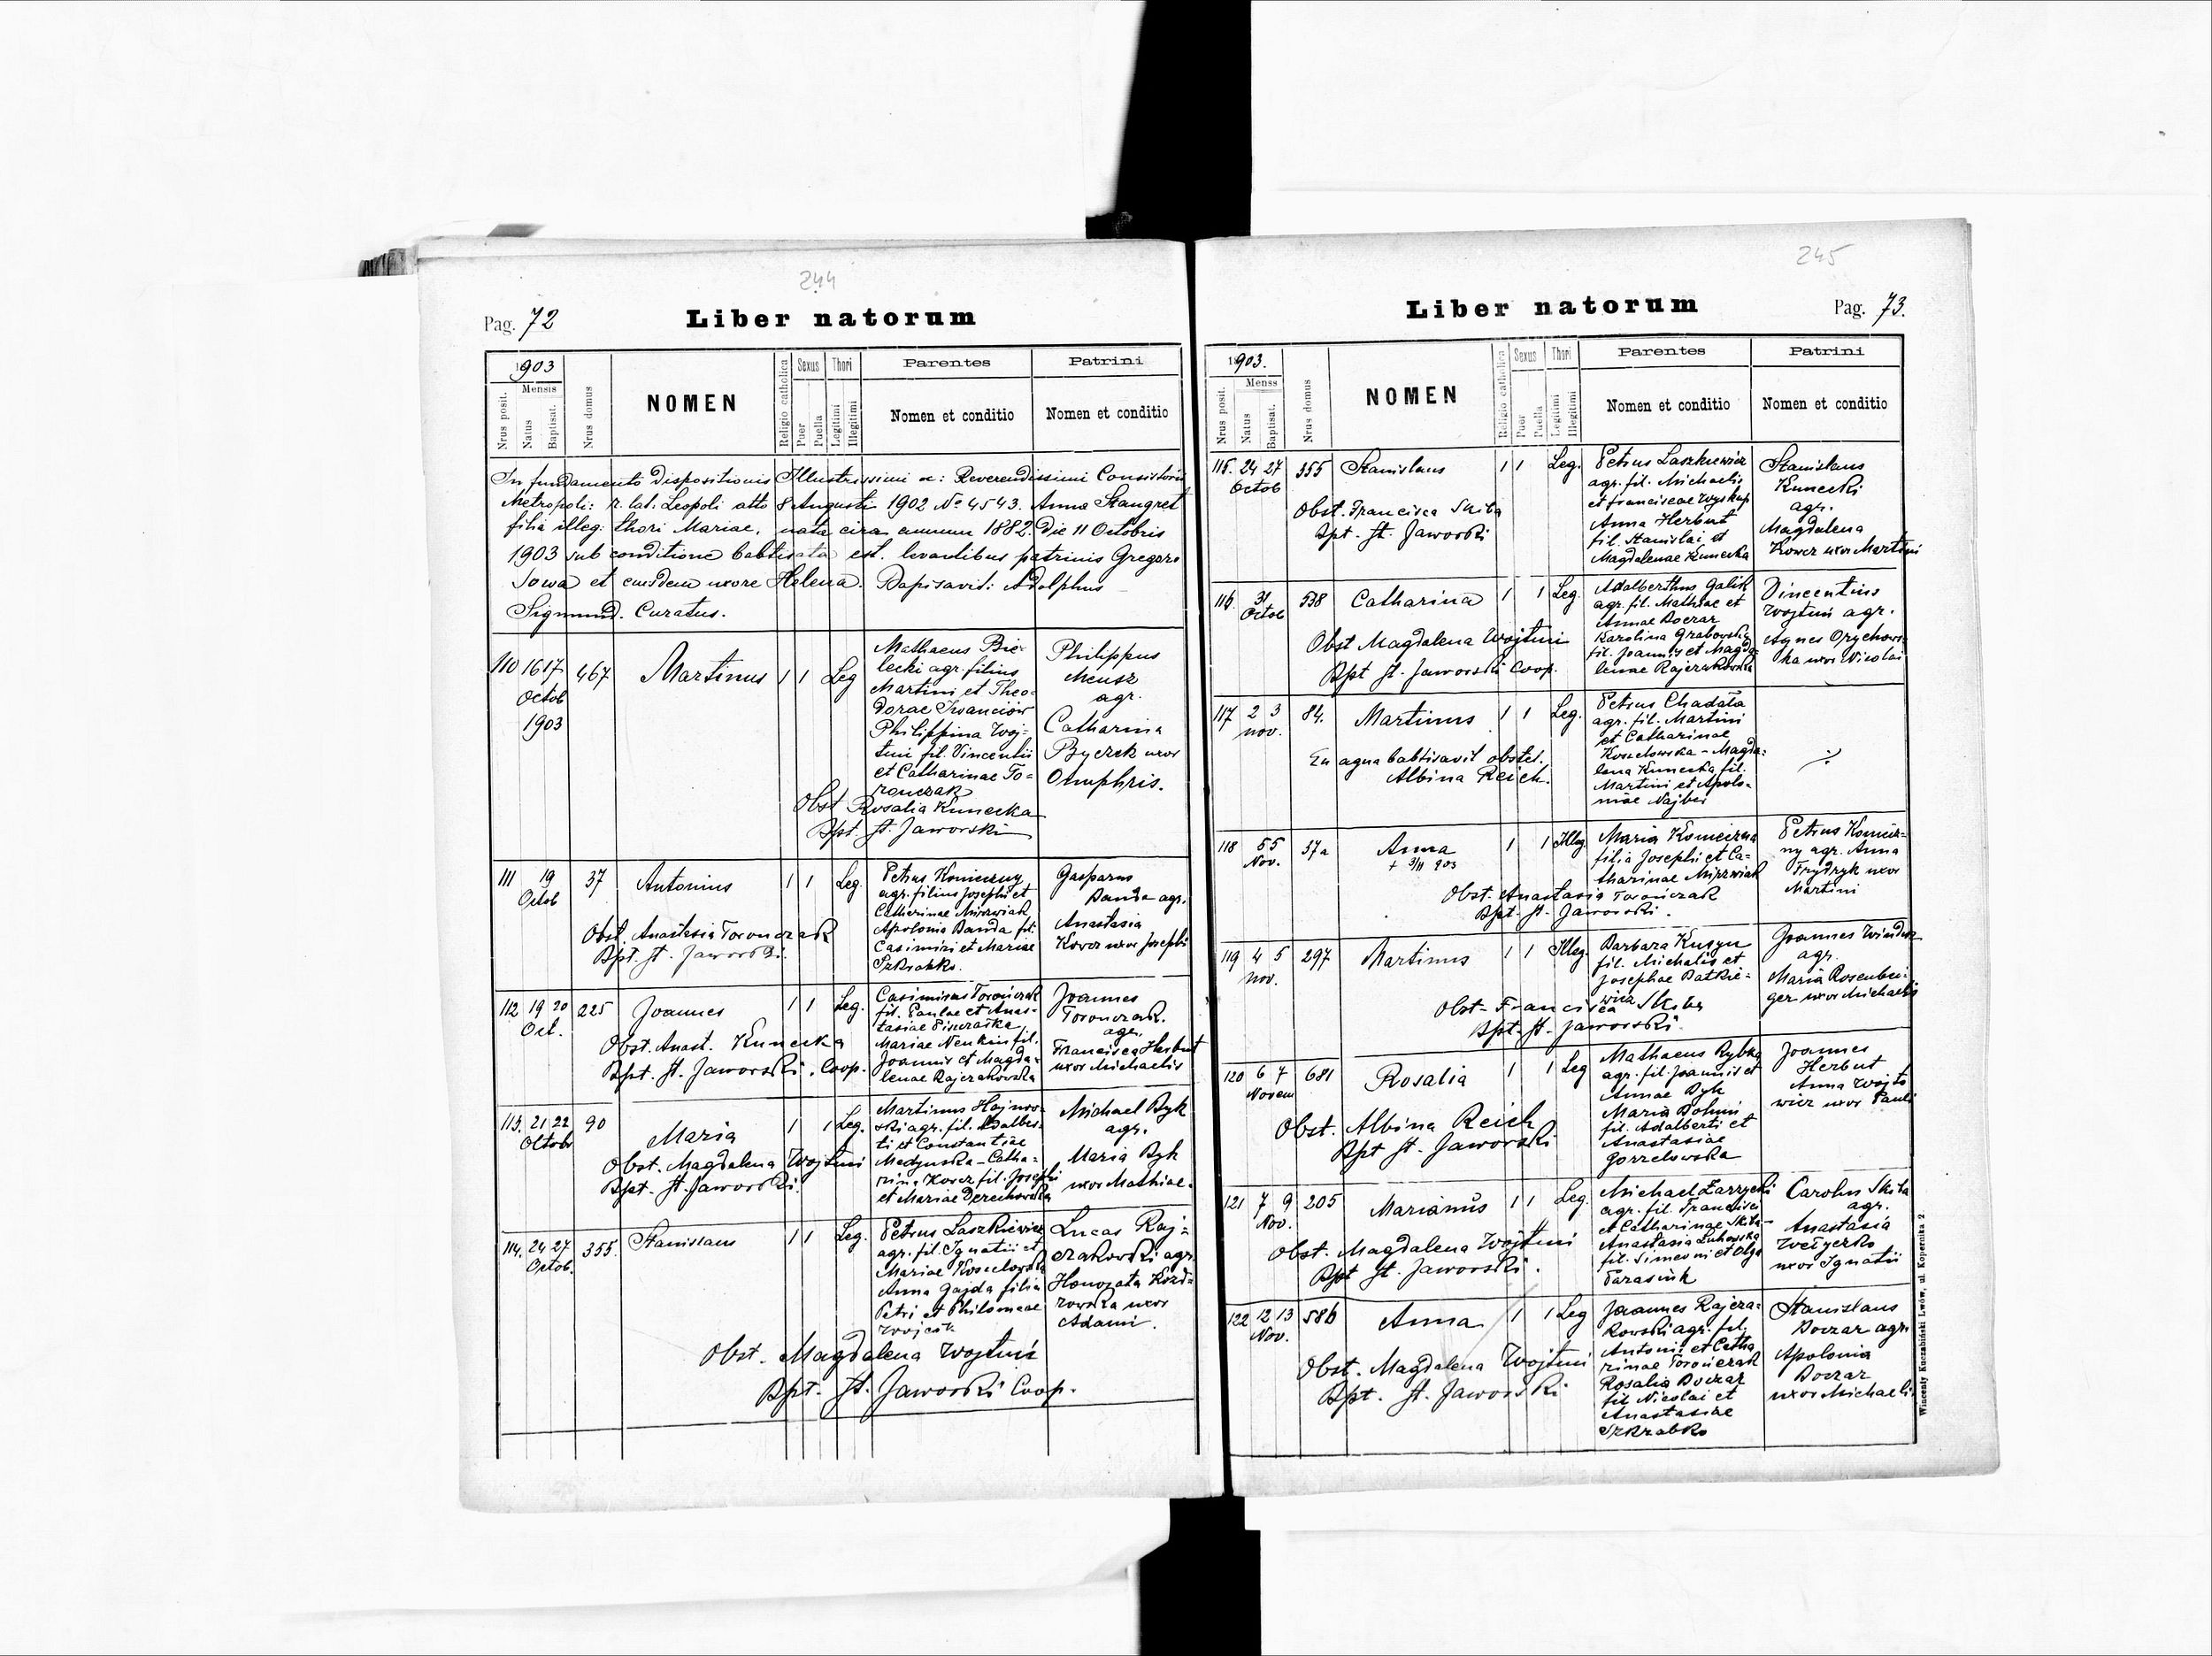 244
Pag. 72
Liber natorum
1903
Mensis
Nrus posit.
Natus
Baptisat.
Nrus domus
NOMEN
Religio catholica
Sexus
Puer
Puella
Thori
Legitimi
Illegitimi
Parentes
Nomen et conditio
Patrini
Nomen et conditio
In fundamento Dispositionis Illustrissimi ac: Reverendissimi Consistorii
Metropoli: r. lat. Leopoli dtto 8 Augusti 1902 No 4543. Anna Stangret
filia illeg: thori Mariae, nata circa annum 1882. Die 11 Octobris
1903 sub conditione babtisata est. levantibus patrinis Gregorio
Sowa et eiusdem uxore Helena. Bapisavit: Adolphus
Sigmund. Curatus.
110 16 17 Octob 1903 467 Martinus 1 1 Leg
Mathaeus Bie-
lecki agr. filius
Martini et Theo-
dorae Iwanciów
Philippina Woj-
tuń fil. Vincentii
et Catharinae To-
ronczak
Philippus
Meusz
agr.
Catharina
Byczek uxor
Omphris.
Obst Rosalia Kunecka
Bpt. St. Jaworski
111 19 Octob 37 Antonius 1 1 Leg.
Petrus Konieczny
agr. filius Josephi et
Catherinae Mierzwiak
Apolonia Banda fil.
Casimiri et Mariae
Szkrabko.
Gasparus
Banda agr.
Anastasia
Kower uxor Josephi
Obst. Anastasia Toronczak
Bpt. St. Jaworski.
112 19 20 Oct. 225 Joannes 1 1 Leg.
Casimirus Torończak
fil. Paulae et Anas-
tasiae
Mariae fil.
Joannis et Magda-
lenae Rajczakowska
Joannes
Toronczak.
agr.
Francisca Herbut
uxor Michaelis
Obst. Anast. Kunecka
Bpt. St. Jaworski. Coop.
113. 21 22 Octobr 90 Maria 1 1 Leg.
Martinus Hajnow-
ski agr. fil. Adalber-
ti et Constantiae
Medynska - Catha-
rina Kower fil. Josephi
et Mariae Derechowska
Michael Byk
agr.
Maria Byk
uxor Mathiae.
Obst. Magdalena Wojtuni
Bpt. St. Jaworski.
114. 24 27 Octob. 355. Stanislaus 1 1 Leg.
Petrus Laszkiewicz
agr. fil. Ignatii et
Mariae Koscelowska
Anna Gajda filia
Petri et Philomeae
Wojcik
Lucas Raj-
czakowski agr.
Honorata Kozd-
rowska uxor
Adami.
Obst. Magdalena Wojtuń
Bpt. St. Jaworski Coop.
245
Liber natorum
Pag. 73.
1903.
Menss
Nrus posit.
Natus
Baptisat.
Nrus domus
NOMEN
Religio catholica
Sexus
Puer
Puella
Thori
Legitimi
Illegitimi
Parentes
Nomen et conditio
Patrini
Nomen et conditio
115. 24 27 Octob 355 Stanislaus 1 1 Leg.
Petrus Laszkiewicz
agr. fil. Michaelis
et Franciscae Wyskup
Anna Herbut
fil. Stanislai et
Magdalenae Kunecka
Stanislaus
Kunecki
agr.
Magdalena
Kower uxor Martini
Obst. Francisca Skiba
Bpt. St. Jaworski
116. 31 Octob 538 Catharina 1 1 Leg.
Adalberthus Galik
agr. fil. Mathiae et
Annae Boczar
Karolina Grabowska
fil. Joannis et Magda-
lenae Rajczakowska
Vincentius
Wojtuń agr.
Agnes Orychows-
ka uxor Nicolai
Obst Magdalena Wojtuni
Bpt St. Jaworski Coop.
117 2 3 nov. 84. Martinus 1 1 Leg.
Petrus Chadała
agr. fil. Martini
et Catharinae
Koscelowska - Magda-
lena Kunecka fil.
Martini et Apolo-
niae Najbei
Eu aqua babtisavit obstet.
Albina Reich.
118 5 5 Nov. 37a Anna 1 1 Illeg
+ 3/11 903
Maria Konieczna
filia Josephi et Ca-
tharinae Mierzwiak
Petrus Koniecz-
ny agr. Anna
Frydryk uxor
Martini
Obst. Anastasia Torończak
Bpt. St. Jaworski.
119 4 5 Nov. 297 Martinus 1 1 Illeg
Barbara Kusyn
fil. Michalis et
Josephae Batkie-
wicz
Joannes
agr.
Maria Rosenbei-
ger uxor Michaelis
Obst- Francisca Skiba
Bpt. St. Jaworski.
120 6 7 Novem 681 Rosalia 1 1 Leg
Mathaeus Rybka
agr. fil. Joannis et
Annae Byk
Maria Bohuń
fil. Adalberti et
Anastasiae
Gorzelowska
Joannes
Herbut
Anna Wojto
wicz uxor Pauli
Obst. Albina Reich
Bpt St. Jaworski
121 7 9 Nov. 205 Marianus 1 1 Leg.
Michael Zarzycki
agr. fil. Francisci
et Catharinae Skiba-
Anastasia Luhowska
fil. Simeoni et Olga
Tarasiuk
Carolus Skiba
agr.
Anastasia
Wełyczko
uxor Ignatii
Obst. Magdalena Wojtuni
Bpt St. Jaworski.
122 12 13 Nov. 586 Anna 1 1 Leg
Joannes Rajcza-
kowski agr. fil.
Antoni et Catha
rinae Torończak
Rosalia Boczar
fil Nicolai et
Anastasiae
Szkrabko
Stanislaus
Boczar agr.
Apolonia
Boczar
uxor Michaelis
Obst. Magdalena Wojtuni
Bpt. St. Jaworski.
Wincenty Kuczabiński Lwów, ul. Kopernika 2